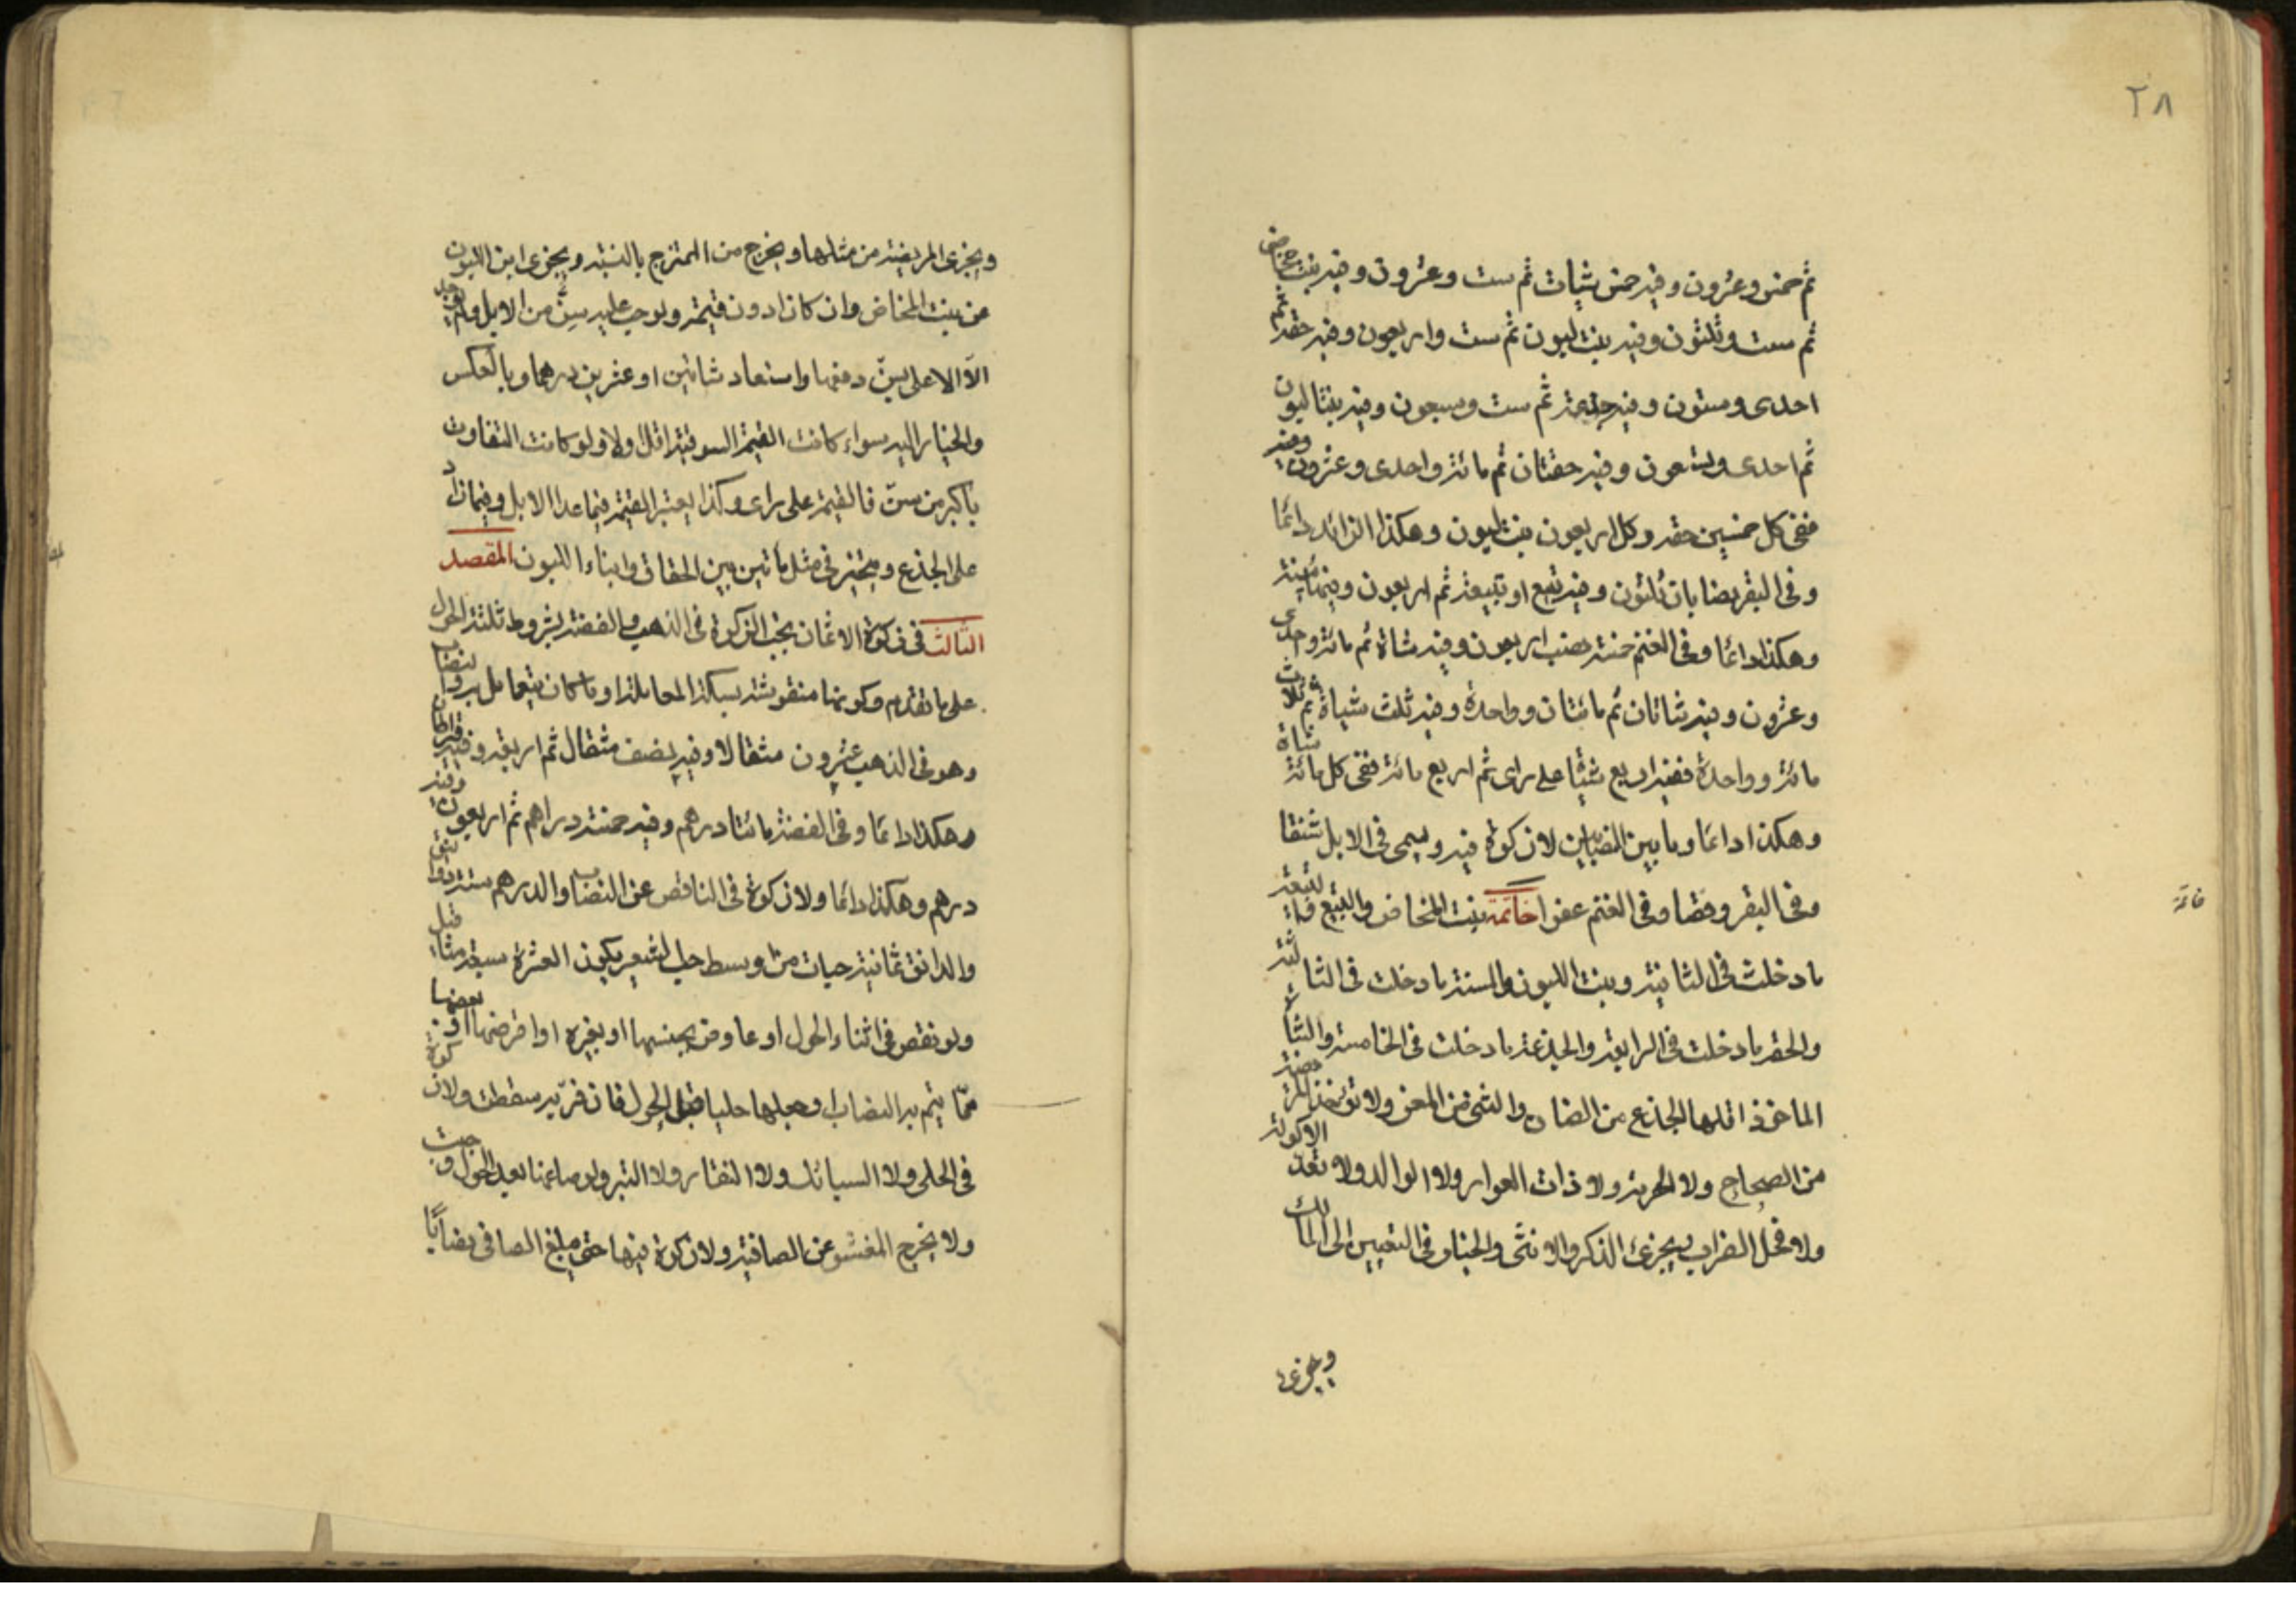 ٢٨
ثم خمس وعشرون وفيه خمس شياة ثم ست وعشرون وفيه بنت مخاض
ثم ست وثلثون وفيه بنت لبون ثم ست واربعون وفيه حقة ثم
احدى وستون وفيه جذعة ثم ست وسبعون وفيه بنتا لبون
ثم احدى وتسعون وفيه حقتان ثم مائة واحدى وعشرون وفيه
ففي كل خمسين حقه وكل اربعون بنت لبون وهكذا الزائد دائما
وفى البقر نصابان ثلثون وفيه تبيع او تبيعة ثم اربعون وفيها مسنة
وهكذا دائما وفى الغنم خمسة نصب اربعون وفيه شاة ثم مائة واحدى
وعشرون وفيه شاتان ثم مائتان وواحدة وفيه ثلث شياة ثم ثلاث
مائة وواحدة ففيه اربع شياة على راى ثم اربع مائة ففى كل مائة شاة
وهكذا دائما وما بين النصابين لا زكوة فيه ويسمى فى الابل شنقا
وفى البقر وقصا وفى الغنم عفوا خاتمة بنت المخاض والتبيع والتبيعة
ما دخلت فى الثانية وبنت اللبون والمسنة ما دخلت فى الثالثة
والحقه ما دخلت فى الرابعة والجذعة ما دخلت فى الخامسة والشاة
الماخوذ اقلها الجذع من الضان والثنى من المعز ولا تؤخذ المريضة
من الصحاح ولا الهرمة ولا ذات العوار ولا الوالد ولا تعد الاكولة
ولا فحل الضراب ويجزئ الذكر والانثى والخيار فى التعيين الى المالك
ويجزى
خاتمة
ويجزى المريضة من مثلها ويخرج من الممتزج بالنسبة ويجزى ابن اللبون
عن بنت المخاض وان كان ادون قيمة ولو وجب عليه سن من الابل ولم يجد
الا الاعلى بسن دفعها واستعاد شاتين او عشرين درهما وبالعكس
والخيار اليه سواء كانت القيمة السوقية اقل اولا ولو كانت التفاوت
باكبر من سن فالقيمة على راى وكذا يعتبر القيمة فيما عدا الابل وفيما زاد
على الجذع ويتخير فى مثل مأتين بين الحقاق وابناء اللبون المقصد
الثالث فى زكوة الاثمان يجب الزكوة فى الذهب والفضة بشروط ثلثة الحول
على ما تقدم وكونها منقوشة بسكة المعاملة او ما كان يتعامل به والنصاب
وهو فى الذهب عشرون مثقالا وفيه نصف مثقال ثم اربعة وفيه قيراطان
وهكذا دائما وفى الفضة مائتا درهم وفيه خمسة دراهم ثم اربعون وفيه
درهم وهكذا دائما ولا زكوة فى الناقص عن النصاب والدرهم ستة دوانق
والدانق ثمانية حبات من وسط حب الشعير يكون العشرة سبعة مثاقيل
ولو نقص فى اثناء الحول او عاوض بجنسها او بغيره او اقرضها او بعضها
مما يتم به النصاب او جعلها حليا قبل الحول فان فر به سقطت ولا زكوة
فى الحلى ولا السبائك ولا النقار ولا التبر ولو صاغها بعد الحول وجبت
ولا يخرج المغشوشة عن الصافية ولا زكوة فيها حتى يبلغ الصافى نصابا